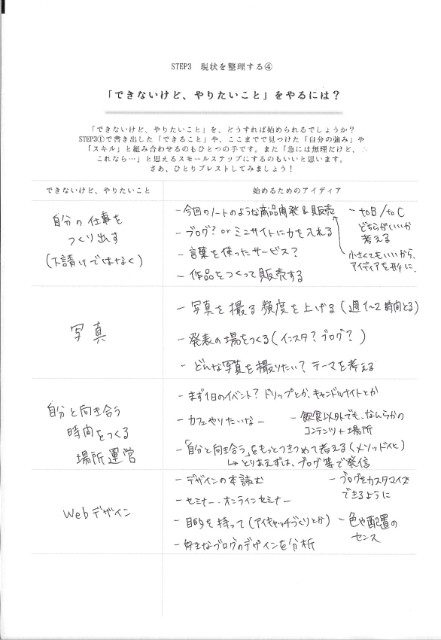 STEP3 現状を整理する④
「できないけど、やりたいこと」をやるには？
「できないけど、やりたいこと」を、どうすれば始められるでしょうか？
STEP3①で書き出した「できること」や、ここまでで見つけた「自分の強み」や
「スキル」と組み合わせるのもひとつの手です。また「急には無理だけど、
これなら…」と思えるスモールステップにするのもいいと思います。
さあ、ひとりブレストしてみましょう！
できないけど、やりたいこと
始めるためのアイディア
自分の仕事を
つくり出す
(下請けではなく)
- 今回のノートのような商品開発&販売
- ブログ? or ミニサイトに力を入れる
- 言葉を使ったサービス?
- 作品をつくって販売する
- toB/toC
どちらがいいか
考える
小さくてもいいから、
アイディアを形に。
写真
- 写真を撮る頻度を上げる (週1~2時間とる)
- 発表の場をつくる (インスタ? ブログ?)
- どんな写真を撮りたい? テーマを考える
自分と向き合う
時間をつくる
場所運営
- まず1日のイベント? ドリップとか、キャンドルナイトとか
- カフェやりたいな…
- 飲食以外でも、なんらかの
コンテンツ+場所
- 「自分と向き合う」をもっとつきつめて考える (メソッド化)
↳ とりあえずは、ブログ等で発信
Webデザイン
- デザインの本読む
- セミナー・オンラインセミナー
- 目的を持って (アイキャッチづくりとか)
- 好きなブログのデザインを分析
- ブログをカスタマイズ
できるように
- 色や配置の
センス